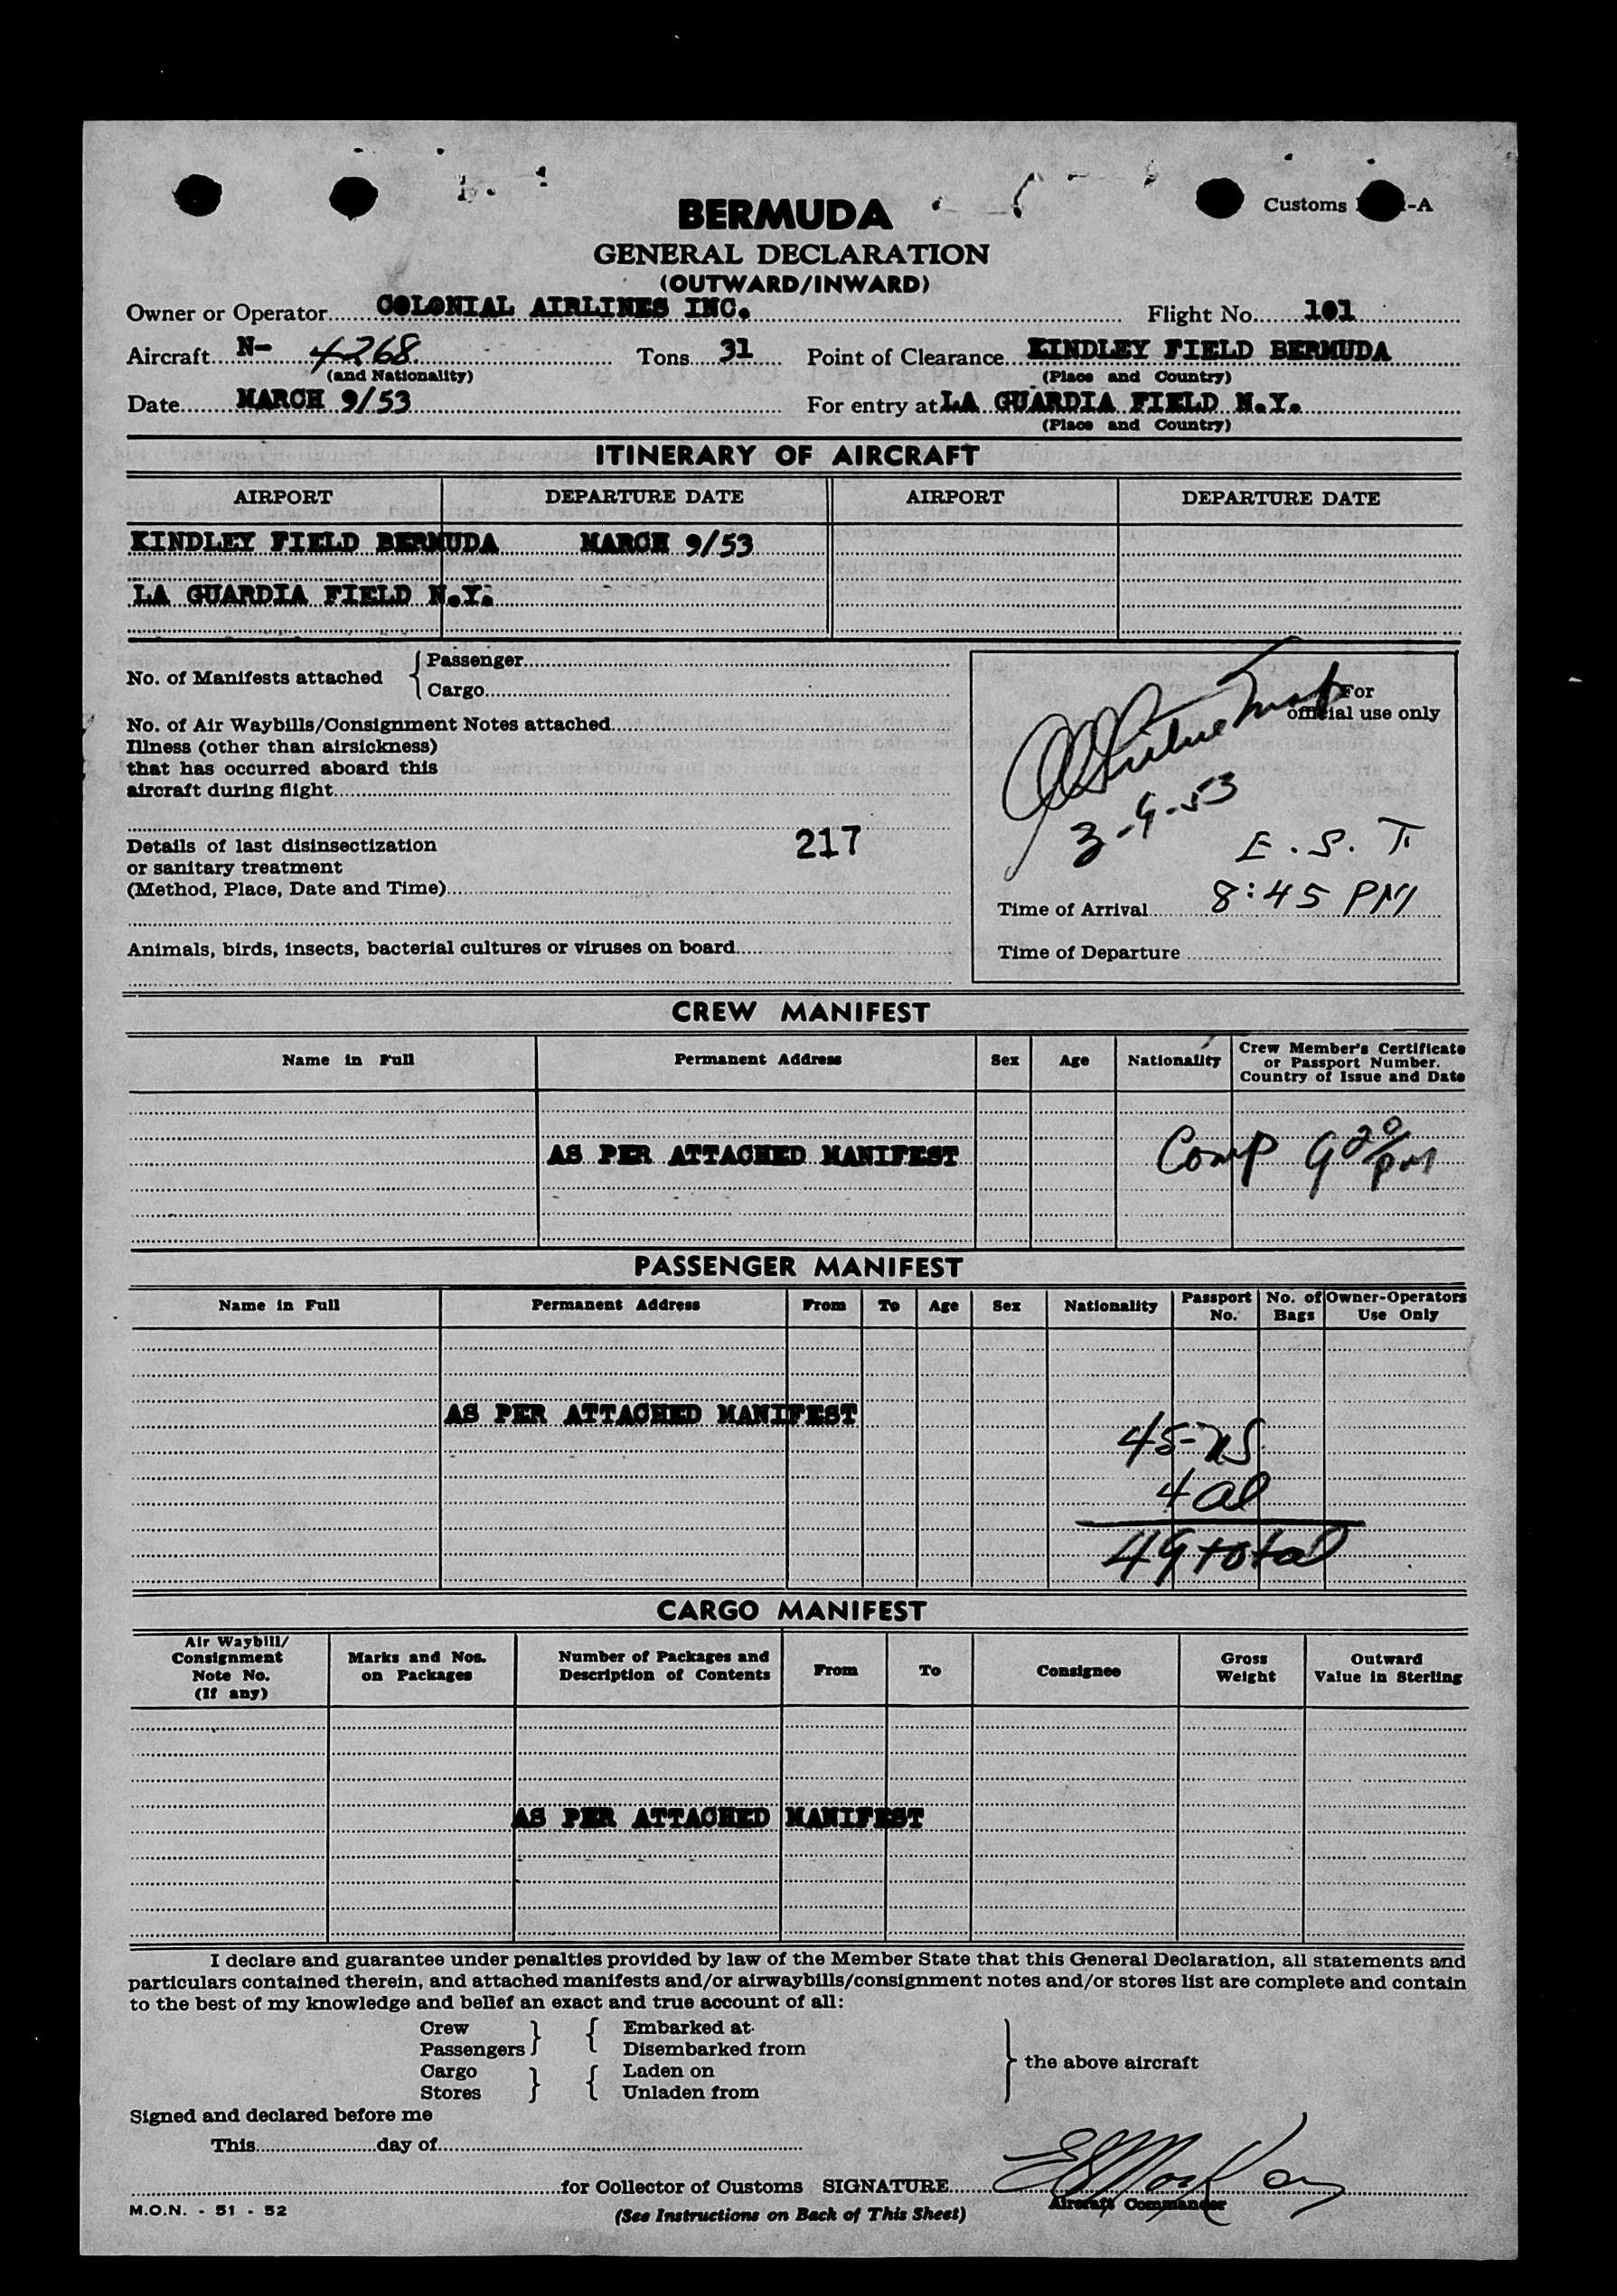 Customs -A
BERMUDA
GENERAL DECLARATION
(OUTWARD/INWARD)
Owner or Operator COLONIAL AIRLINES INC. Flight No. 101
Aircraft N- 4268 Tons 31 Point of Clearance KINDLEY FIELD BERMUDA
(and Nationality) (Place and Country)
Date MARCH 9/53 For entry at LA GUARDIA FIELD N.Y.
(Place and Country)
ITINERARY OF AIRCRAFT
AIRPORT DEPARTURE DATE AIRPORT DEPARTURE DATE
KINDLEY FIELD BERMUDA MARCH 9/53
LA GUARDIA FIELD N.Y.
No. of Manifests attached { Passenger
Cargo
For
official use only
No. of Air Waybills/Consignment Notes attached
Illness (other than airsickness)
that has occurred aboard this
aircraft during flight
3-9-53
Details of last disinsectization 217
or sanitary treatment
(Method, Place, Date and Time)
E.S.T.
Time of Arrival 8:45 PM
Animals, birds, insects, bacterial cultures or viruses on board
Time of Departure
CREW MANIFEST
Name in Full Permanent Address Sex Age Nationality Crew Member's Certificate
or Passport Number.
Country of Issue and Date
AS PER ATTACHED MANIFEST Comp 9 20/PM
PASSENGER MANIFEST
Name in Full Permanent Address From To Age Sex Nationality Passport No. No. of Bags Owner-Operators Use Only
AS PER ATTACHED MANIFEST
45-US
4 al
49 total
CARGO MANIFEST
Air Waybill/ Consignment Note No. (If any) Marks and Nos. on Packages Number of Packages and Description of Contents From To Consignee Gross Weight Outward Value in Sterling
AS PER ATTACHED MANIFEST
I declare and guarantee under penalties provided by law of the Member State that this General Declaration, all statements and
particulars contained therein, and attached manifests and/or airwaybills/consignment notes and/or stores list are complete and contain
to the best of my knowledge and belief an exact and true account of all:
Crew } { Embarked at
Passengers Disembarked from
} the above aircraft
Cargo } { Laden on
Stores Unladen from
Signed and declared before me
This day of
for Collector of Customs SIGNATURE
Aircraft Commander
M.O.N. - 51 - 52
(See Instructions on Back of This Sheet)